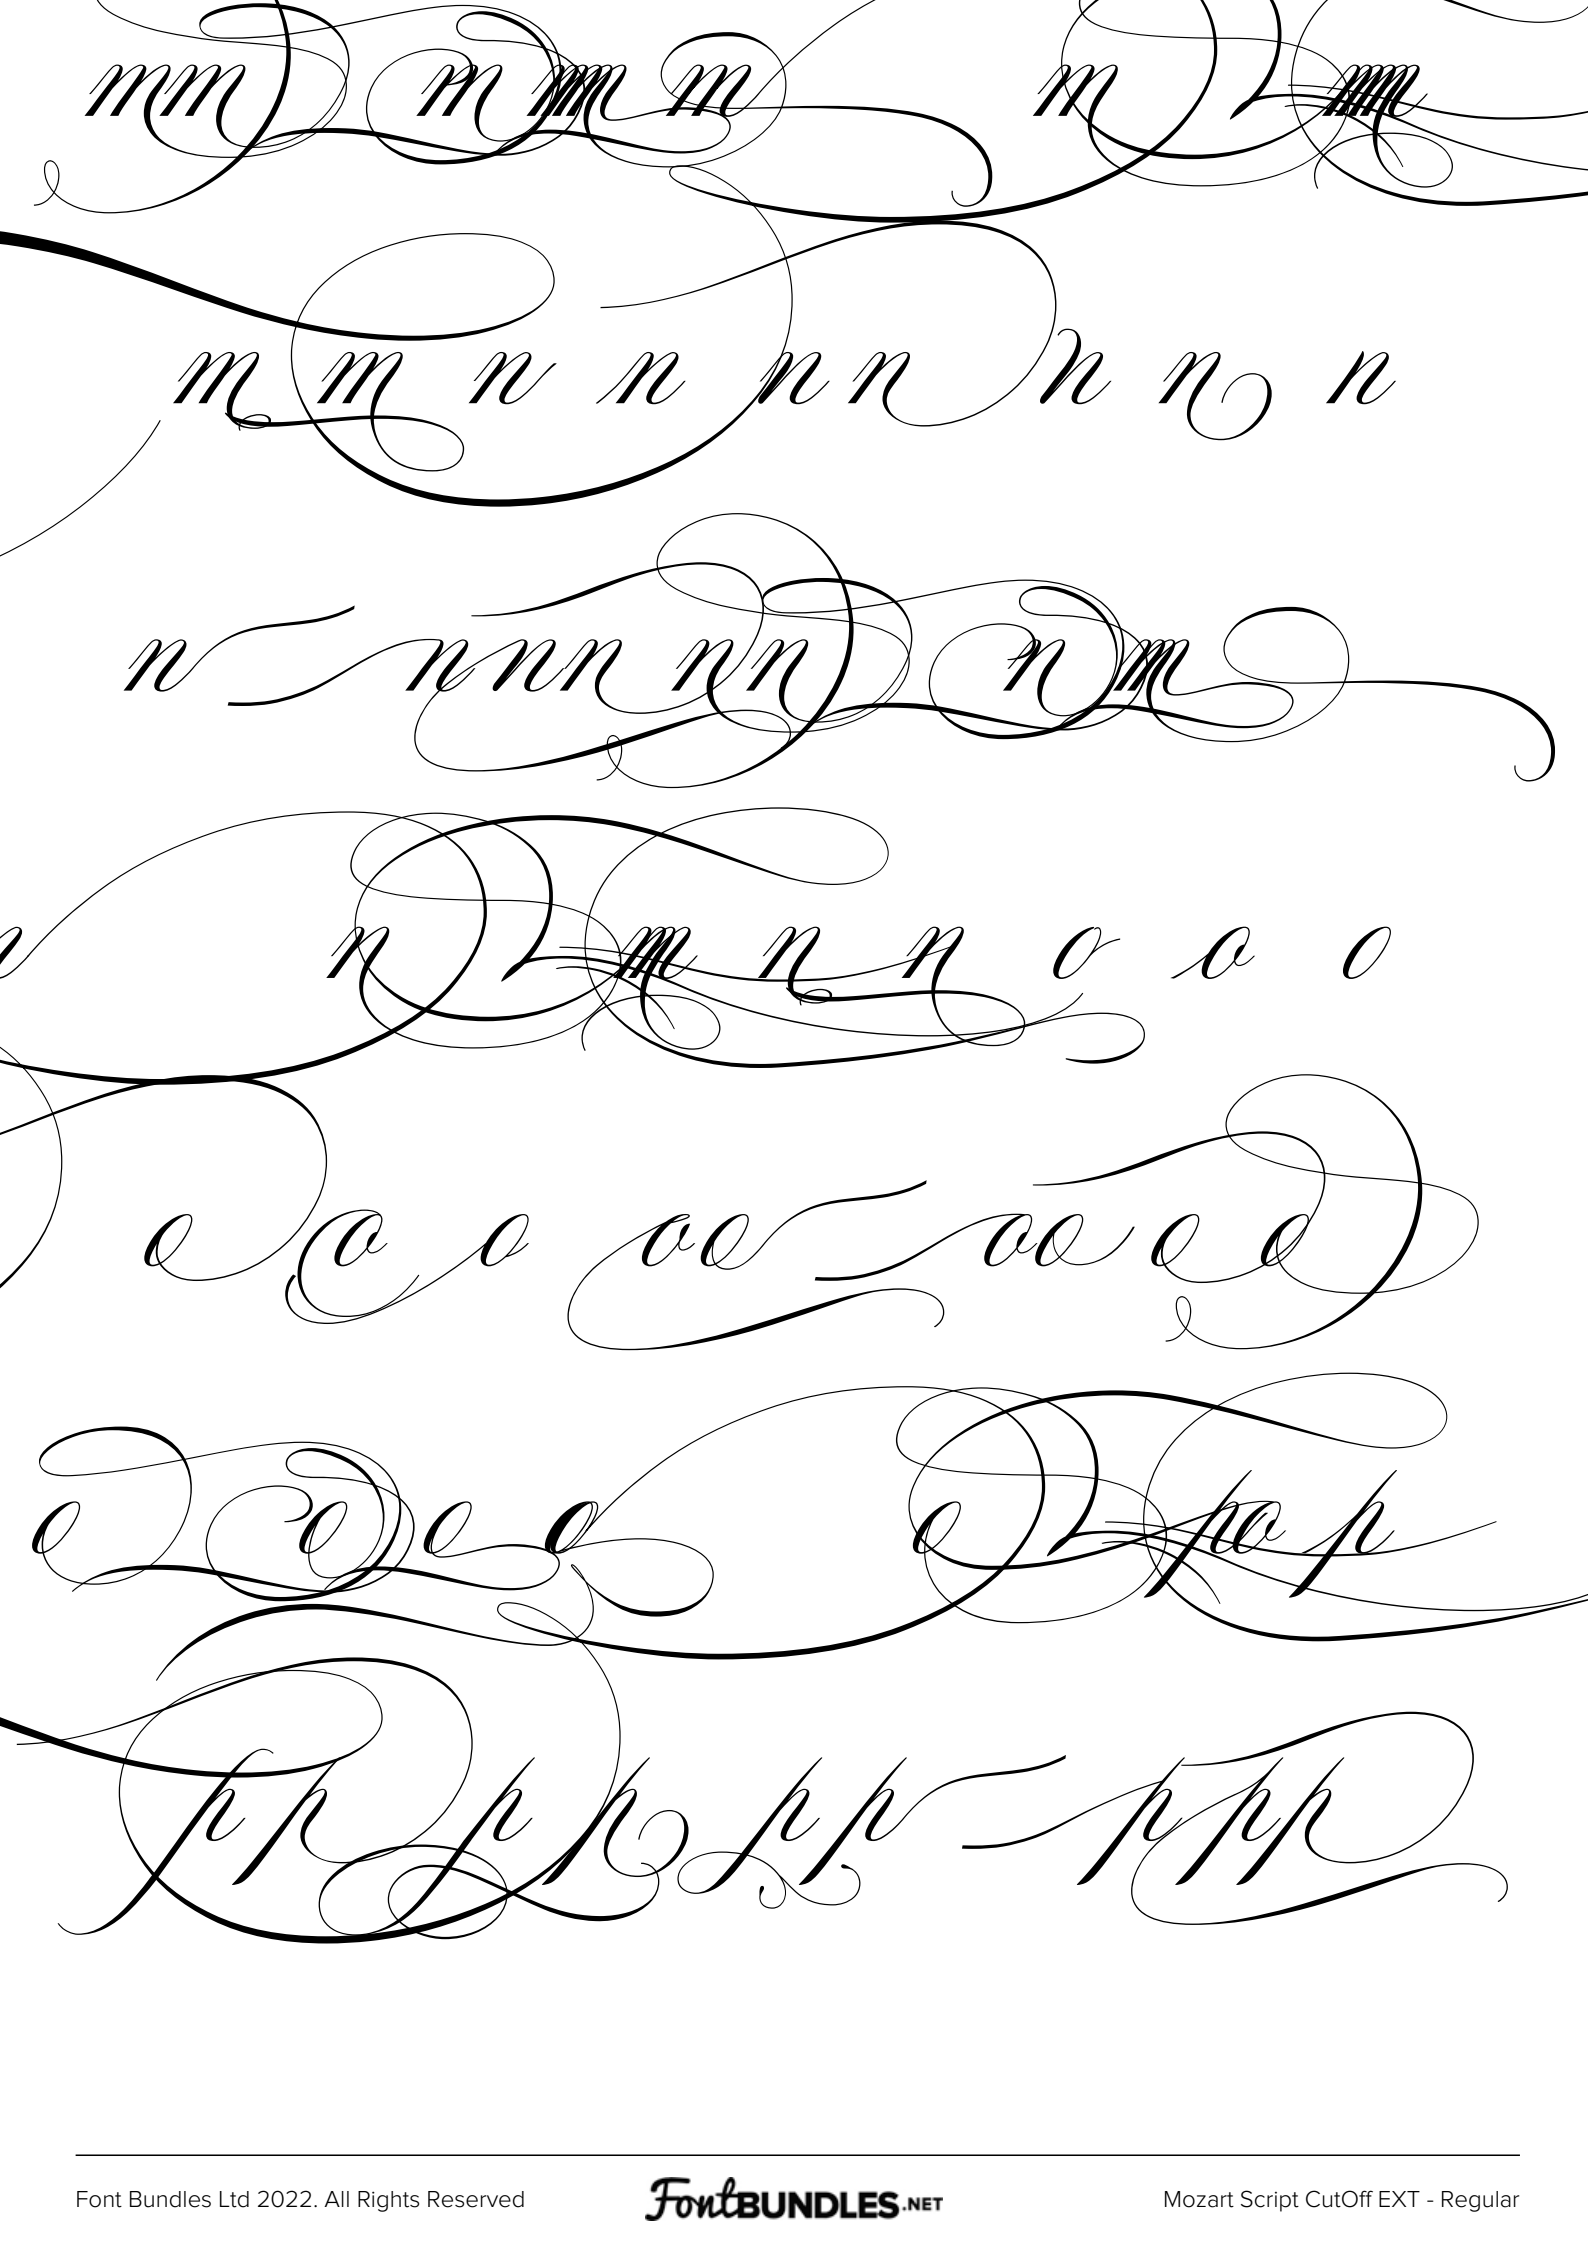 m m m m m m m m
m m n n n n n n n
n n n n n n n n
n n n n o o o
o o o o o o o o o
o o o o o p o p
p p p p p p p p p
Font Bundles Ltd 2022. All Rights Reserved FontBUNDLES.NET Mozart Script CutOff EXT - Regular